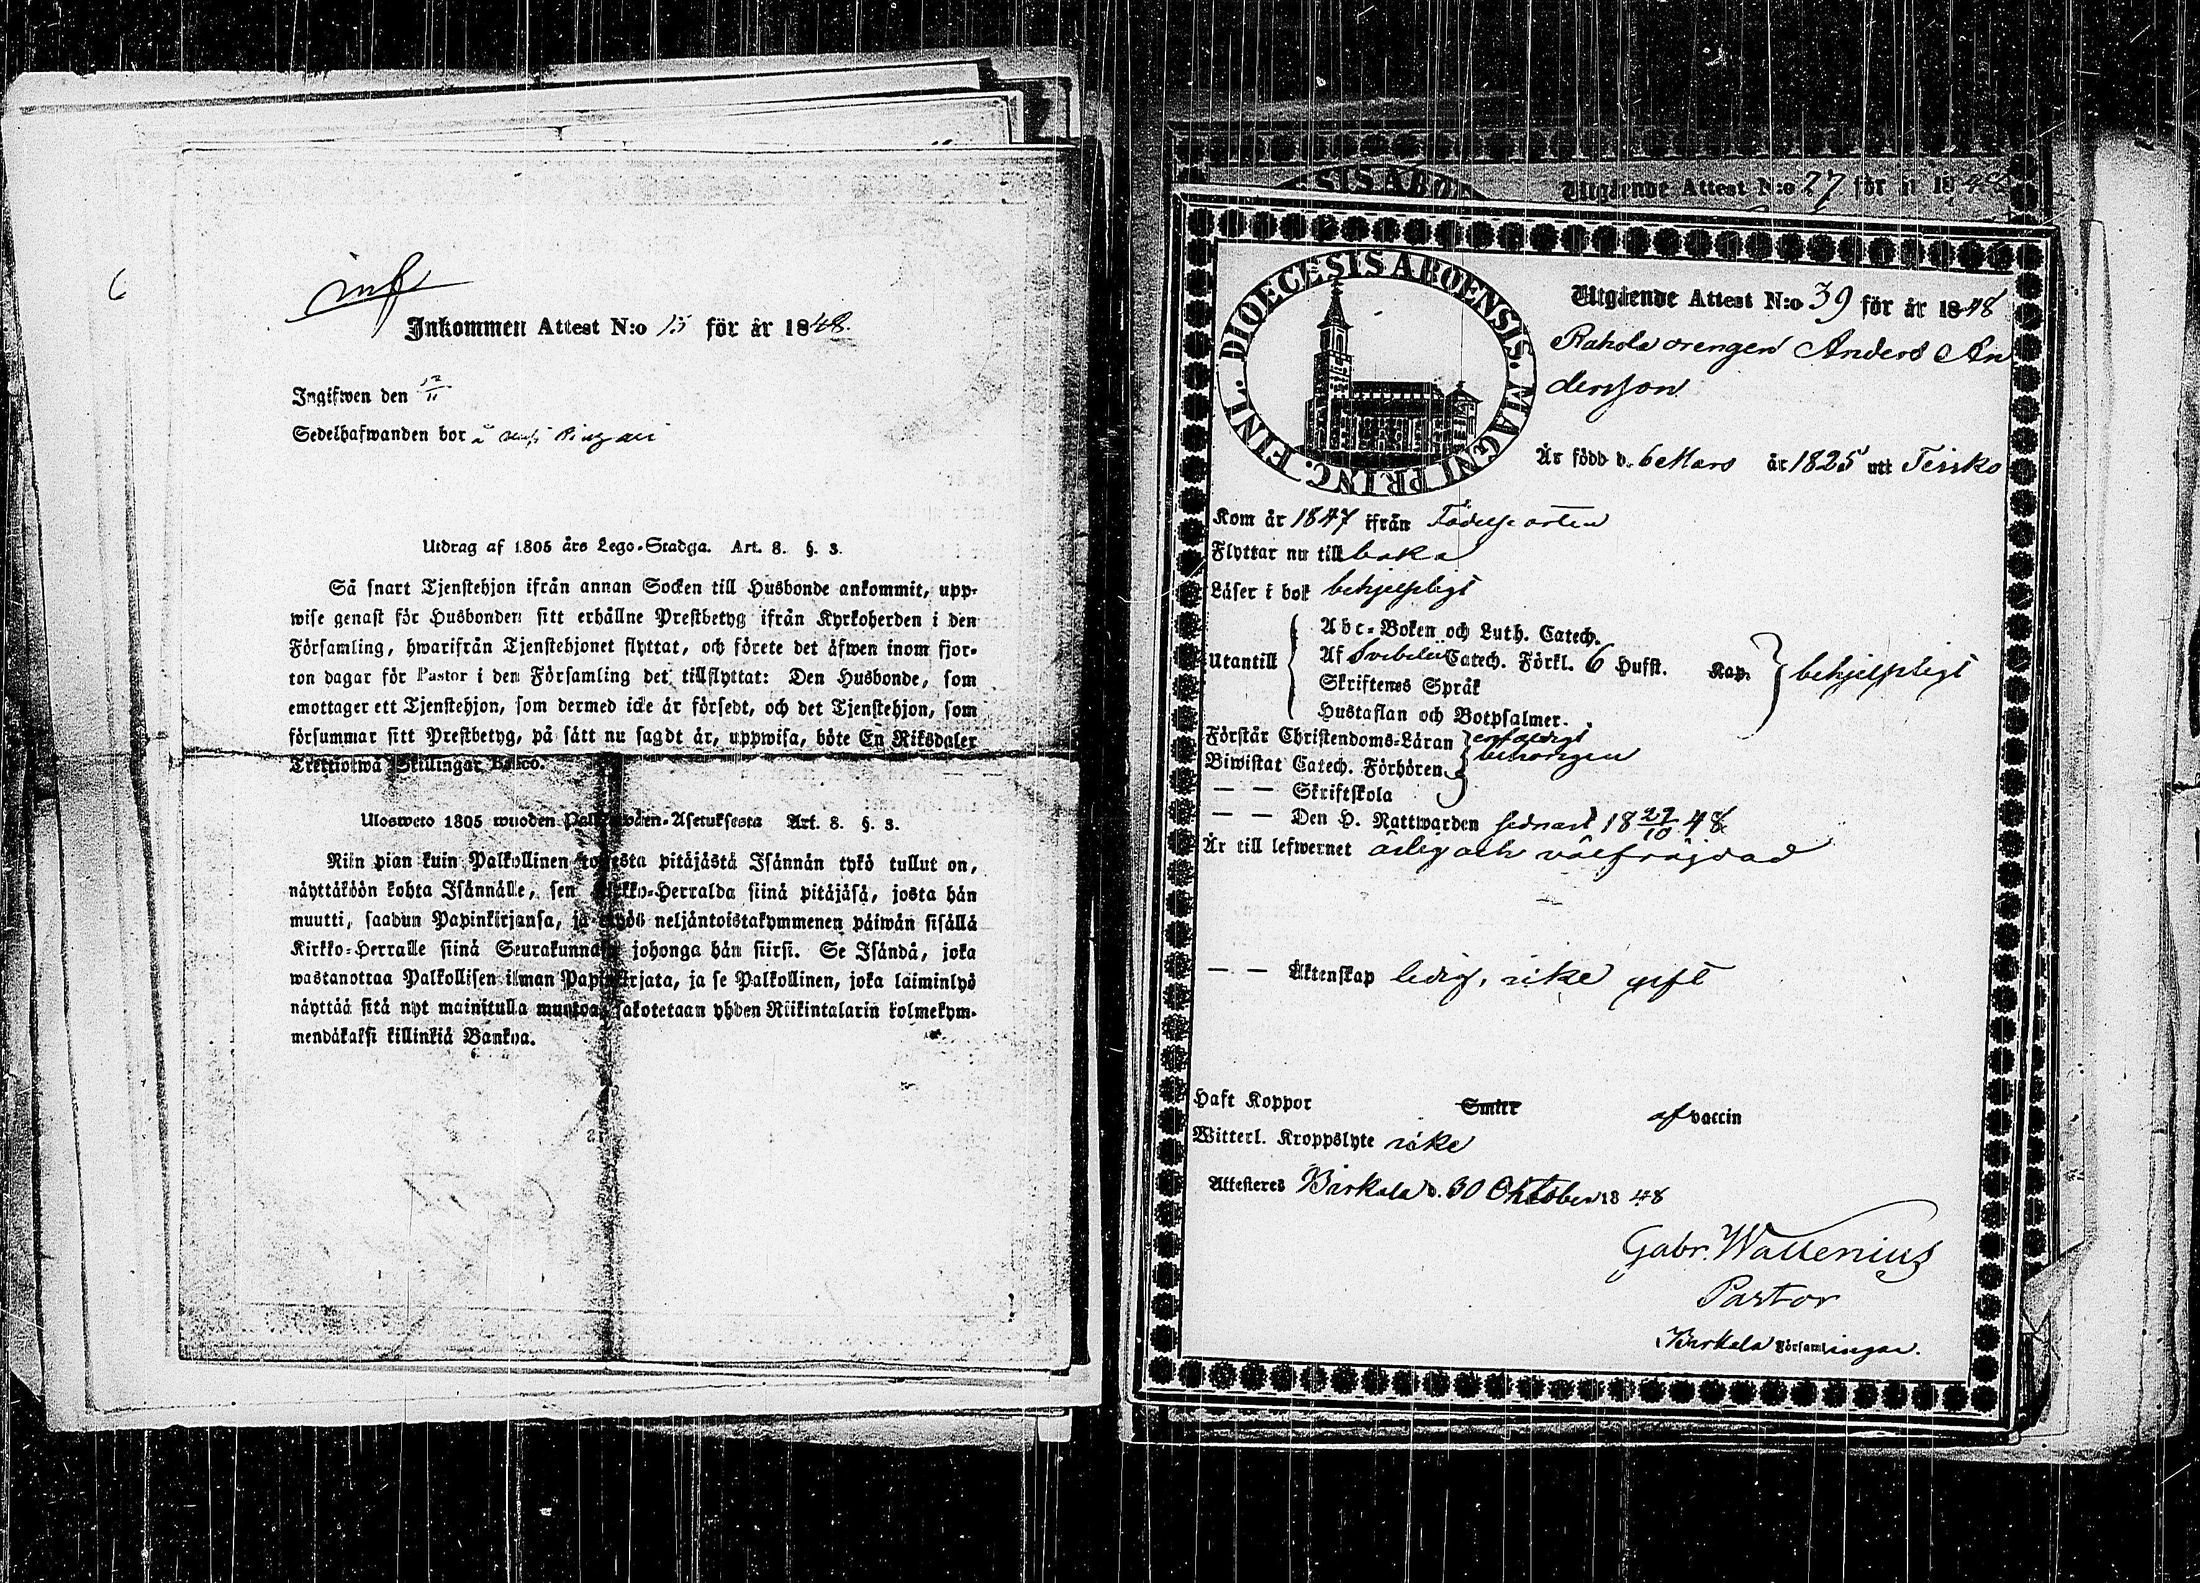 6
inf
Inkommen Attest N:o 15 för år 1848.
Ingifwen den 12/11
Sedelhafwanden bor å
Utdrag af 1805 års Lego-Stadga. Art. 8. §. 3.
Så snart Tjenstehjon ifrån annan Socken till Husbonde ankommit, upp-
wise genast för Husbonden sitt erhållne Prestbetyg ifrån Kyrkoherden i den
Församling, hwarifrån Tjenstehjonet flyttat, och förete det äfwen inom fjor-
ton dagar för Pastor i den Församling det tillflyttat: Den Husbonde, som
emottager ett Tjenstehjon, som dermed icke är försedt, och det Tjenstehjon, som
försummar sitt Prestbetyg, på sätt nu sagdt är, uppwisa, böte En Riksdaler
Trettiotwå Skillingar Banco.
Ulosweto 1805 wuoden Palkowäen-Asetuksesta Art. 8. §. 3.
Niin pian kuin Palkollinen toisesta pitäjästä Isännän tykö tullut on,
näyttäköön kohta Isännälle, sen Kirkko-Herralda siinä pitäjäsä, josta hän
muutti, saadun Papinkirjansa, ja myös neljäntoistakymmenen päiwän sisällä
Kirkko-Herralle siinä Seurakunnasa johonga hän siirsi. Se Isändä, joka
wastanottaa Palkollisen ilman Papinkirjata, ja se Palkollinen, joka laiminlyö
näyttää sitä nyt mainitulla muotoa, sakotetaan yhden Riikintalarin kolmekym-
mendäkaksi killinkiä Bankoa.
Utgående Attest N:o 27 för år 1848
DIOECESIS ABOENSIS. MAGNI PRINC. FINL.
Utgående Attest N:o 39 för år 1848
Rahola drengen Anders An
dersson
Är född d. 6 Mars år 1825 uti Teisko
Kom år 1847 ifrån Födelseorten
Flyttar nu till baka
Läser i bok behjelpligt
Utantill
Abc-Boken och Luth. Catech.
Af Svebelii Catech. Förkl. 6 Hufst. Kap. behjelpligt
Skriftenes Språk
Hustaflan och Botpsalmer.
Förstår Christendoms-Läran enfaldigt
Biwistat Catech. Förhören behörigen
— — Skriftskola
— — Den H. Nattwarden sednast 18 29/10 48
Är till lefwernet ärlig och välfräjdad
— — Äktenskap ledig, icke gift
Haft Koppor Smitt af vaccin
Witterl. Kroppslyte icke
Attesteres Birkala d. 30 Oktober 1848
Gabr. Wallenius
Pastor
Birkala Församlingar.